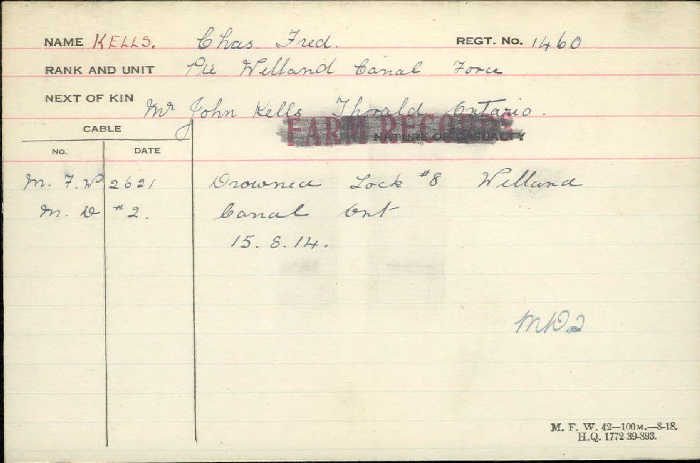 NAME KELLS. Chas Fred. REGT. No. 1460
RANK AND UNIT Pte Welland Canal Force
NEXT OF KIN Mr John Kells Thorold Ontario.
CABLE FARM RECORDS NATURE OF CASUALTY
No. DATE
M. F. W. 2621 Drowned Lock #8 Welland
M. D #2. Canal Ont
15. 8. 14.
MD2
M. F. W. 42—100M.—8-18.
H.Q. 1772 39-893.